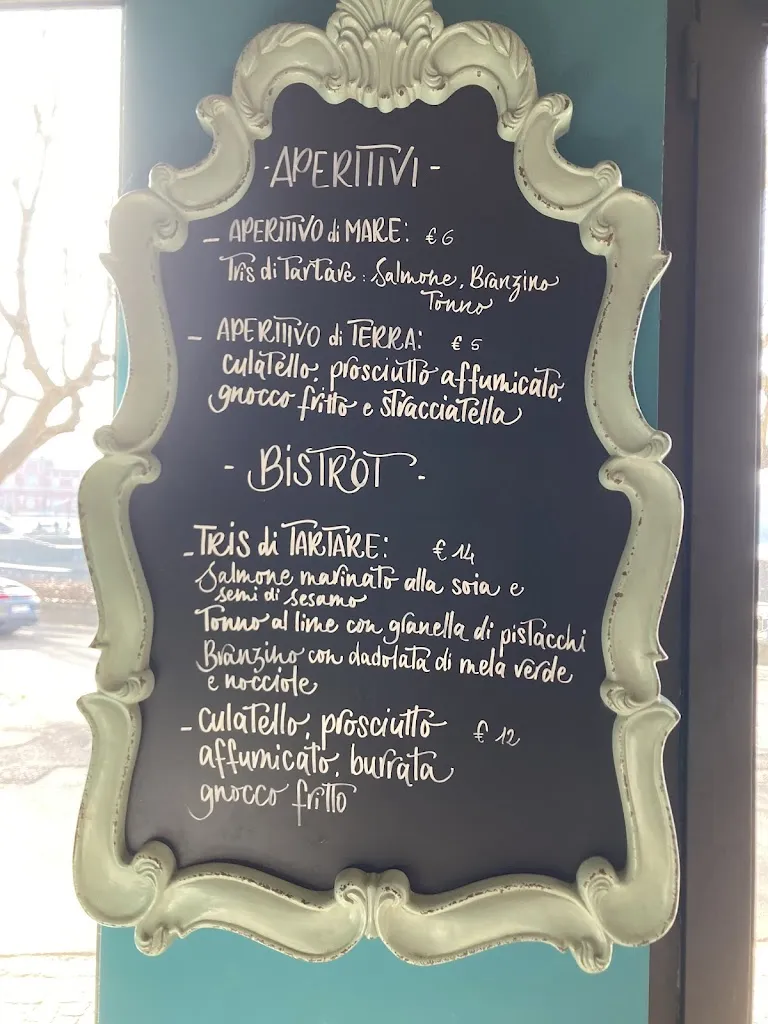 - APERITIVI -
- APERITIVO di MARE: € 6
Tris di Tartare: Salmone, Branzino
Tonno
- APERITIVO di TERRA: € 5
culatello, prosciutto affumicato,
gnocco fritto e stracciatella
- BISTROT -
- TRIS di TARTARE: € 14
Salmone marinato alla soia e
semi di sesamo
Tonno al lime con granella di pistacchi
Branzino con dadolata di mela verde
e nocciole
- culatello, prosciutto € 12
affumicato, burrata
gnocco fritto